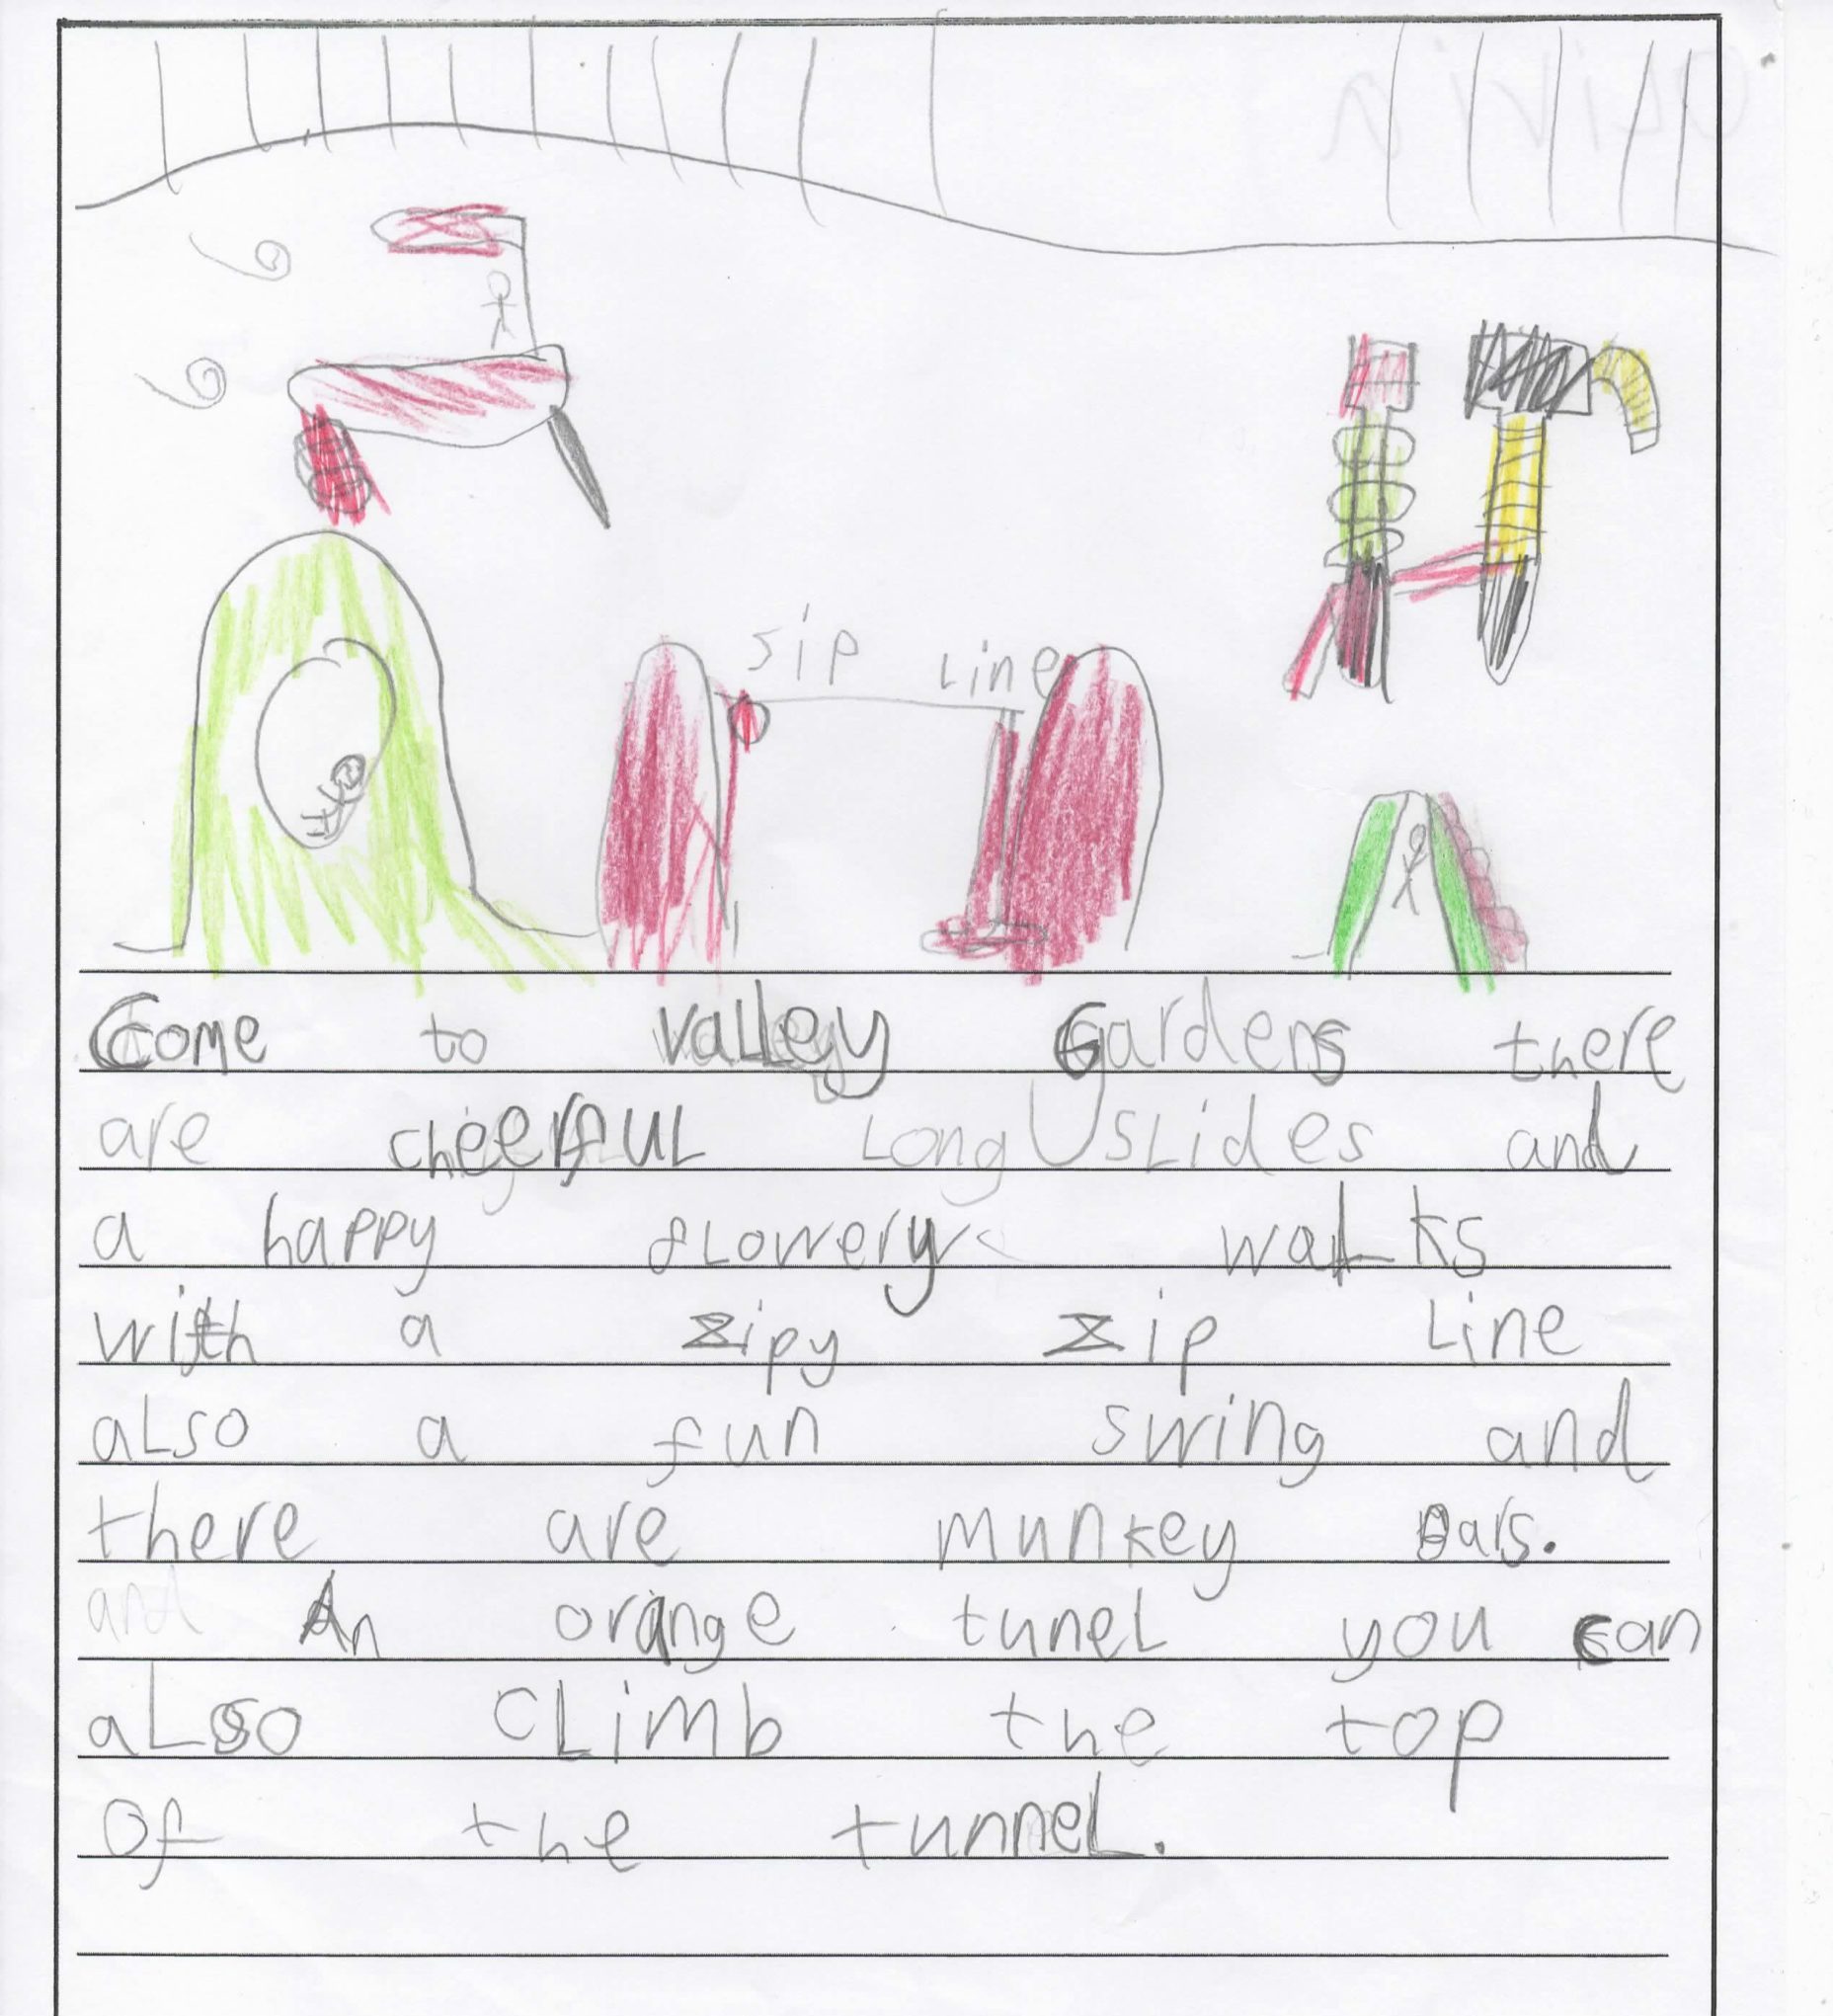 sip Line
Come to valley Gardens there
are cheerful Long slides and
a happy flowery walks
with a zipy zip Line
also a fun swing and
there are munkey Bars.
and An orange tunel you can
also climb the top
of the tunnel.